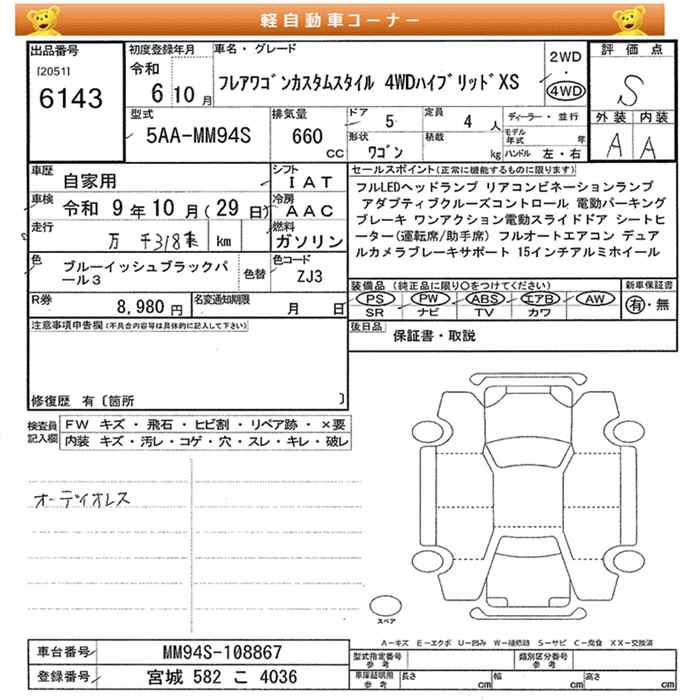 軽自動車コーナー
出品番号 [2051] 6143
初度登録年月 令和 6 10 月
車名・グレード フレアワゴンカスタムスタイル 4WDハイブリッドXS
2WD・4WD
評価点 S
外装 内装 A A
型式 5AA-MM94S
排気量 660 CC
ドア 5 定員 4 人
形状 ワゴン 積載 kg
ディーラー・並行
モデル年式 年
ハンドル 左・右
車歴 自家用
シフト IAT
車検 令和 9 年 10 月(29 日)
冷房 AAC
走行 万 千318 km
燃料 ガソリン
色 ブルーイッシュブラックパール3
色替
色コード ZJ3
R券 8,980 円
名変通知期限 月 日
セールスポイント(正常に機能するものに限ります)
フルLEDヘッドランプ リアコンビネーションランプ
アダプティブクルーズコントロール 電動パーキング
ブレーキ ワンアクション電動スライドドア シートヒ
ーター(運転席/助手席) フルオートエアコン デュア
ルカメラブレーキサポート 15インチアルミホイール
装備品 (純正品に限り○をつけてください)
PS PW ABS エアB AW
SR ナビ TV カワ
新車保証書 有・無
後日品 保証書・取説
注意事項申告欄(不具合内容等は具体的に記入して下さい)
修復歴 有〔箇所 〕
検査員記入欄
FW キズ・飛石・ヒビ割・リペア跡・×要
内装 キズ・汚レ・コゲ・穴・スレ・キレ・破レ
オーディオレス
スペア
A-キズ E-エクボ U-凹み W-補修跡 S-サビ C-腐食 XX-交換済
車台番号 MM94S-108867
登録番号 宮城 582 こ 4036
型式指定番号 参考
類別区分番号 参考
車庫証明用 参考 長さ cm 幅 cm 高さ cm